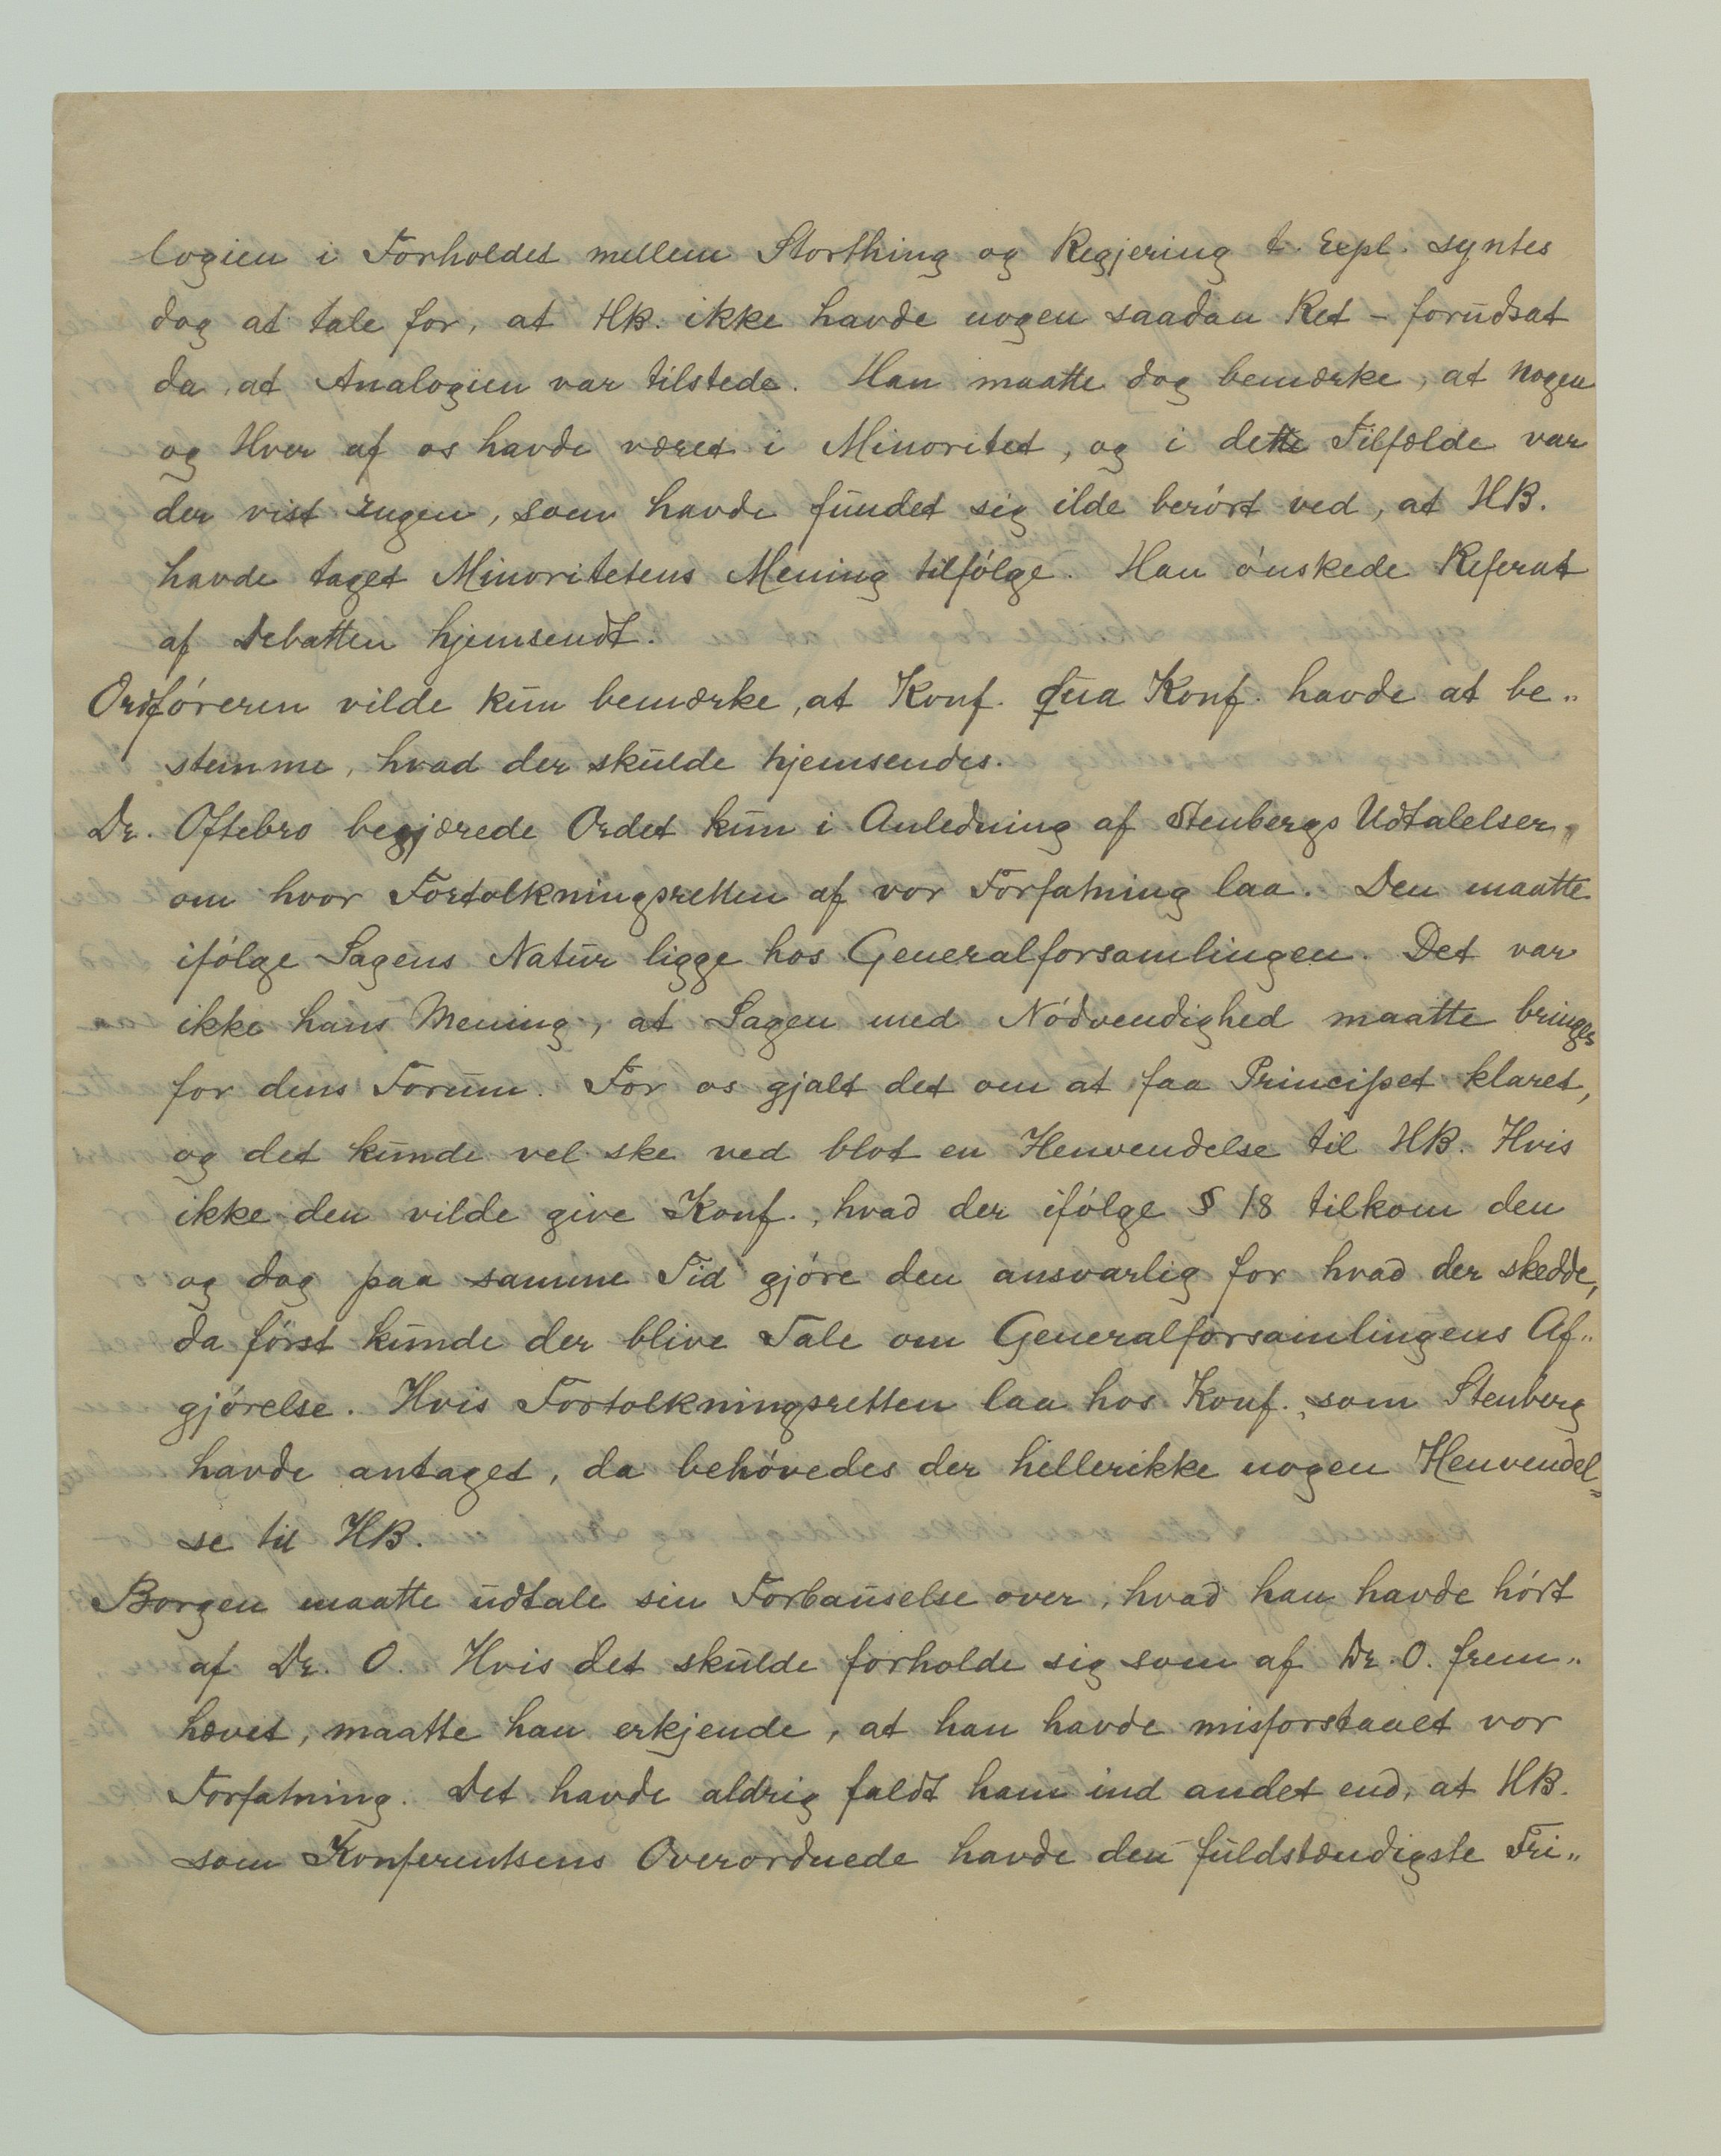 logien i Forholdet mellem Storthing og Regjering t. Expl. syntes
dog at tale for, at HB. ikke havde nogen saadan Ret – forudsat
da, at Analogien var tilstede. Han maatte dog bemærke, at nogen
og Hver af os havde været i Minoritet, og i dette Tilfælde var
der vist ingen, som havde fundet sig ilde berørt ved, at HB.
havde taget Minoritetens Mening tilfølge. Han ønskede Referat
af Debatten hjemsendt.
Ordføreren vilde kun bemærke, at Konf. qua Konf. havde at be„
stemme, hvad der skulde hjemsendes.
Dr. Oftebro begjærede Ordet kun i Anledning af Stenbergs Udtalelser,
om hvor Fortolkningsretten af vor Forfatning laa. Den maatte
ifølge Sagens Natur ligge hos Generalforsamlingen. Det var
ikke hans Mening, at Sagen med Nødvendighed maatte bringes
for dens Forum. For os gjalt det om at faa Principet klaret,
og det kunde vel ske ved blot en Henvendelse til HB. Hvis
ikke den vilde give Konf., hvad der ifølge § 18 tilkom den
og dog paa samme Tid gjøre den ansvarlig for hvad der skedde,
da først kunde der blive Tale om Generalforsamlingens Af„
gjørelse. Hvis Fortolkningsretten laa hos Konf., som Stenberg
havde antaget, da behøvedes der hellerikke nogen Henvendel=
se til HB.
Borgen maatte udtale sin Forbauselse over, hvad han havde hørt
af Dr. O. Hvis det skulde forholde sig som af Dr. O. frem„
hævet, maatte han erkjende, at han havde misforstaaet vor
Forfatning. Det havde aldrig faldt ham ind andet end, at HB.
som Konferentsens Overordnede havde den fuldstændigste Fri„